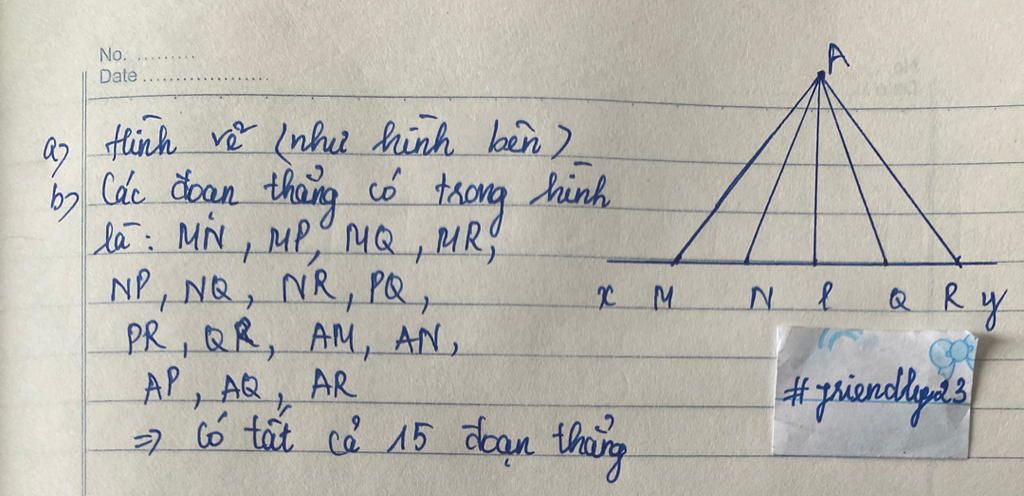 No. ..........
Date ...................
a) Hình vẽ (như hình bên)
b) Các đoạn thẳng có trong hình
là: MN, MP, MQ, MR,
NP, NQ, NR, PQ,
PR, QR, AM, AN,
AP, AQ, AR
=> Có tất cả 15 đoạn thẳng
A
x M N P Q R y
#friendly23